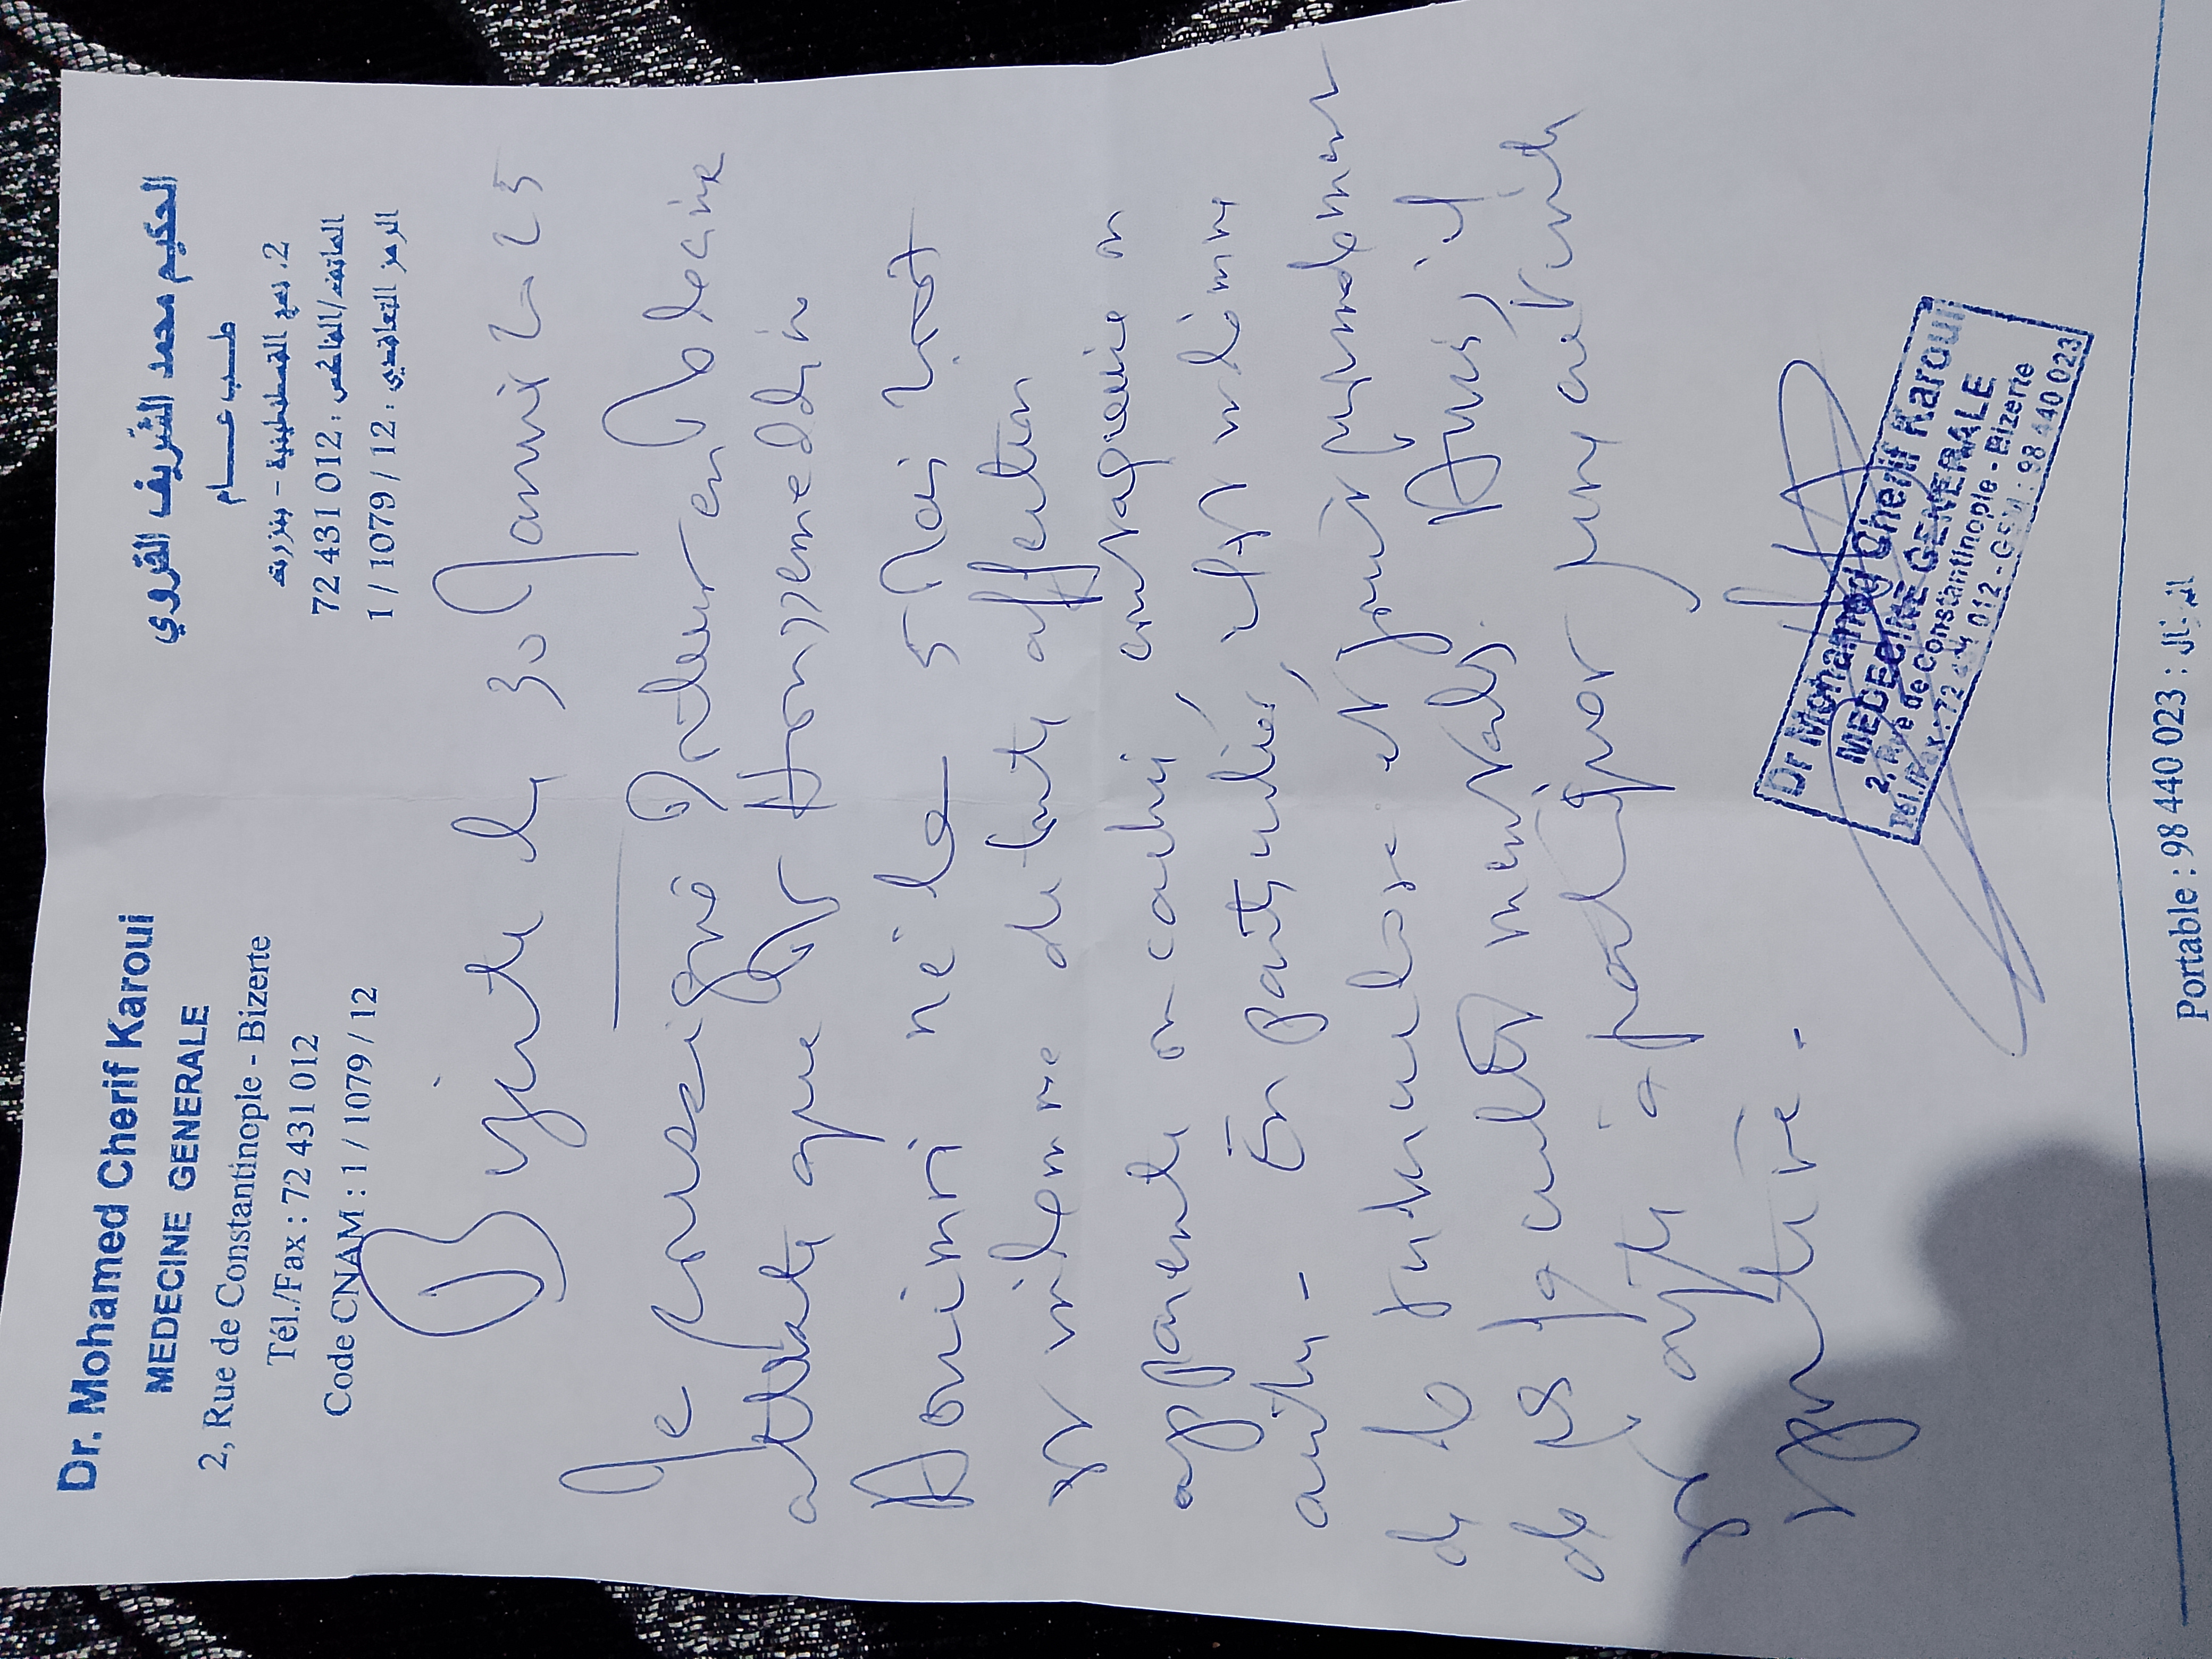 Dr. Mohamed Cherif Karoui
MEDECINE GENERALE
2, Rue de Constantinople - Bizerte
Tél./Fax : 72 431 012
Code CNAM : 1 / 1079 / 12
الحكيم محمد الشريف القروي
طب عام
2، نهج القسطنطينية - بنزرت
الهاتف/الفاكس : 72 431 012
الرمز التعاقدي : 1 / 1079 / 12
Bizerte le 30 Janvier 2025
Je soussigné Docteur en Médecine
atteste que Mr Houssemeddin
né le 5 Mai
est indemne de toute affection
apparente ou cachée, contagieuse ou
autre - En particulier, il est indemne
de la tuberculose et jouit pleinement
de ses facultés mentales. Aussi, il
est apte à pratiquer une activité
sportive -
Dr Mohamed Cherif Karoui
MEDECINE GENERALE
2, Rue de Constantinople - Bizerte
Tél./Fax : 72 431 012 - GSM : 98 440 023
Portable : 98 440 023 : الجوال